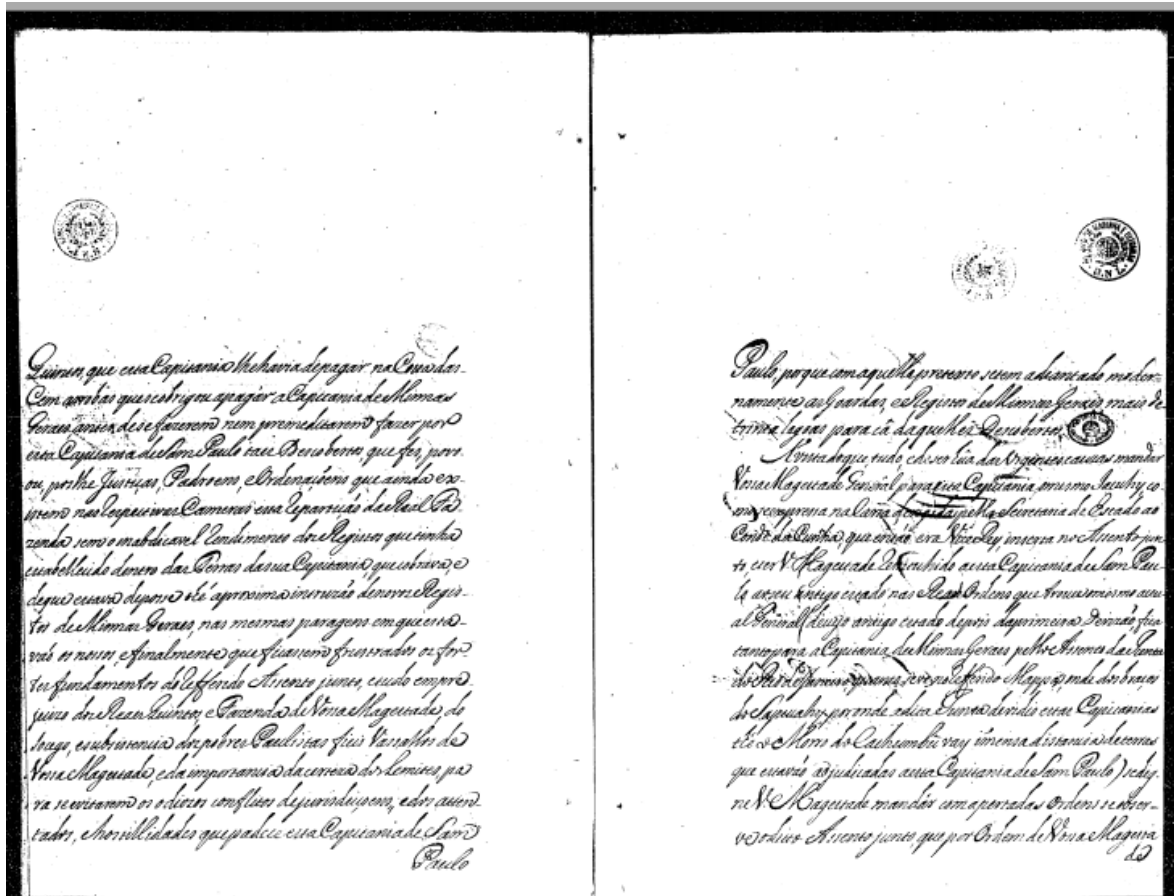 Quintos, que esta Capitania lhe havia de pagar na Cota das
Cem arrobas que se obrigou a pagar a Capitania de Minnas
Geraes, antes de se fazerem nem premeditarem fazer por
esta Capitania de Sam Paulo taes Descobertos, que fes, povo-
ou, pos lhe Justiças, Padroens, e Ordenaçoens que ainda ex-
istem nas respectivas Cameras essa repartição da Real Fa-
zenda sem o Rendimento dos Registos que tinha
estabellecido dentro das Terras da sua Capitania que cobrava, e
de que estava de posse até a proxima de novos Regis-
tos de Minnas Geraes, nas mesmas paragens em que esta-
vão os nossos, e finalmente que ficassem frustrados os for-
tes fundamentos do refferido Assento junto, e tudo em pre-
juizo dos Reaes Quintos, e Fazenda de Vossa Magestade, do
socego, e subsistencia dos pobres Paulistas fieis Vassallos de
Vossa Magestade, e da importancia da certeza dos Lemites, pa-
ra se evitarem os odiozos conflitos de jurisdiçoens, e dos atten-
tados, e hostillidades que padece esta Capitania de Sam
Paulo
Paulo, porque com aquelle pretexto se tem adiantado moder-
namente as Guardas, e Registos de Minnas Geraes mais de
trinta legoas para cá daquelles Descobertos.
A vista do que tudo, e de ser hua das Urgentes cauzas mandar
Vossa Magestade General para esta Capitania, o mesmo Jacuhy co-
mo se expressa na Carta dirigida pella Secretaria de Estado ao
Conde da Cunha, que então era Vice Rey, inserta no Assento jun-
to e ser V. Magestade restituhido a esta Capitania de Sam Pau-
lo ao seu antigo estado nas Reaes Ordens que trouxe o mesmo actu-
al General (de cujo antigo estado depois da primeira Devizão, fica
tanto para a Capitania de Minnas Geraes pello Assento da Junta
do Rio de Janeiro quanto se ve no refferido Mappa, onde dos braços
do Sapucahy por onde a dita Junta devidio estas Capitanias
té o Morro do Cachumbú vay imensa distancia de terras
que estavão adjudicadas a esta Capitania de Sam Paulo) se dig-
ne V. Magestade mandar com apertadas Ordens se obser-
ve o dito Assento junto, que por Ordem de Vossa Magesta
de